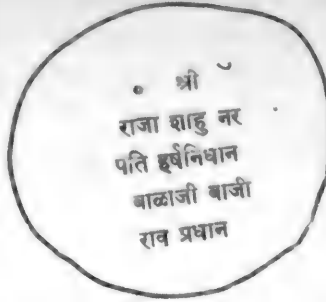 श्री
राजा शाहु नर
पति हर्षनिधान
बाळाजी बाजी
राव प्रधान